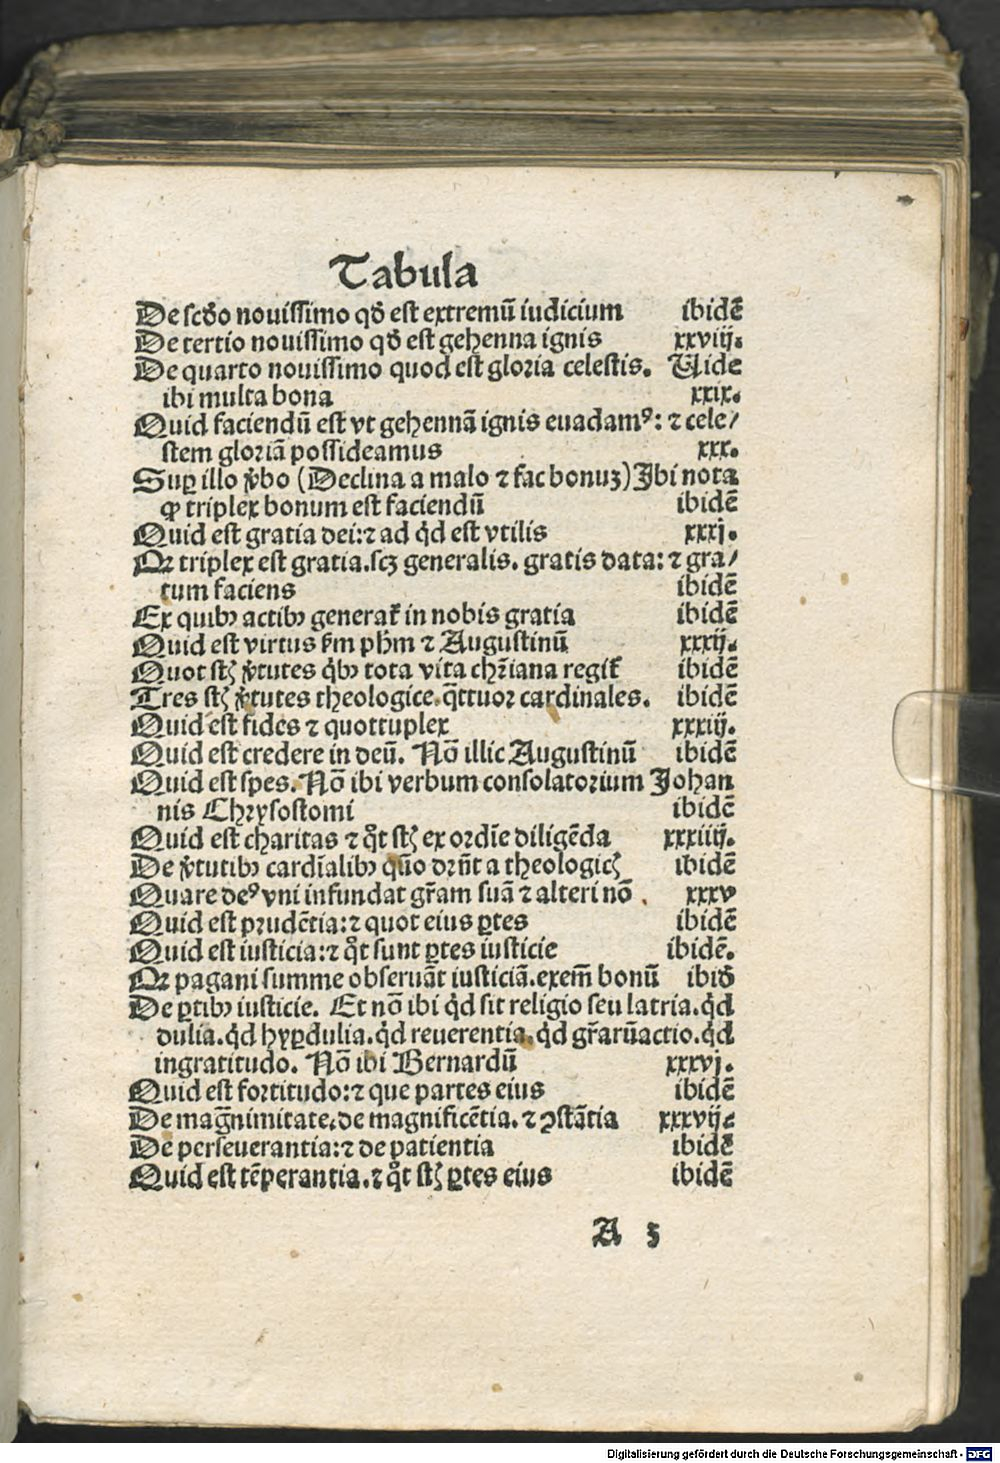 Tabula
De scďo nouissimo qď est extremū iudicium ibidē
De tertio nouissimo qď est gehenna ignis xxviij.
De quarto nouissimo quod est gloria celestis. Uide
ibi multa bona xxix.
Quid faciendū est vt gehennā ignis euadamꝰ: ⁊ cele/
stem gloriā possideamus xxx.
Suꝑ illo v̓bo (Declina a malo ⁊ fac bonuꝫ) Ibi nota
ꝙ triplex bonum est faciendū ibidē
Quid est gratia dei:⁊ ad qͥd est vtilis xxxj.
Qꝛ triplex est gratia.scꝫ generalis. gratis data: ⁊ gra/
tum faciens ibidē
Ex quibꝰ actibꝰ generat᷑ in nobis gratia ibidē
Quid est virtus ẜm pħm ⁊ Augustinū xxxij.
Quot st̄ v̓tutes qͥbꝰ tota vita chr̄iana regit᷑ ibidē
Tres st̄ v̓tutes theologice.q̄ttuor cardinales. ibidē
Quid est fides ⁊ quottuplex xxxiij.
Quid est credere in deū. Nō illic Augustinū ibidē
Quid est spes. Nō ibi verbum consolatorium Johan
nis Chrysostomi ibidē
Quid est charitas ⁊ qͦt st̄ ex ordīe diligēda xxxiiij.
De v̓tutibꝰ cardīalibꝰ quō dr̄nt a theologic̄ ibidē
Quare deꝰ vni infundat gr̄am suā ⁊ alteri nō . xxxv
Quid est prudētia:⁊ quot eius ꝑtes ibidē
Quid est iusticia:⁊ qͦt sunt ꝑtes iusticie ibidē.
Qꝛ pagani summe obseruāt iusticiā.exem̄ bonū ibiď
De ꝑtibꝰ iusticie. Et nō ibi qͥd sit religio seu latria.qͥd
dulia.qͥd hyꝑdulia.qͥd reuerentia.qͥd gr̄arūactio.qͥd
ingratitudo. Nō ibi Bernardū xxxvj.
Quid est fortitudo:⁊ que partes eius ibidē
De maḡnimitate.de magnificētia. ⁊ ꝯstātia xxxvij.
De perseuerantia:⁊ de patientia ibidē
Quid est tēperantia.⁊ qͦt st̄ ꝑtes eius ibidē
A 3
Digitalisierung gefördert durch die Deutsche Forschungsgemeinschaft - DFG